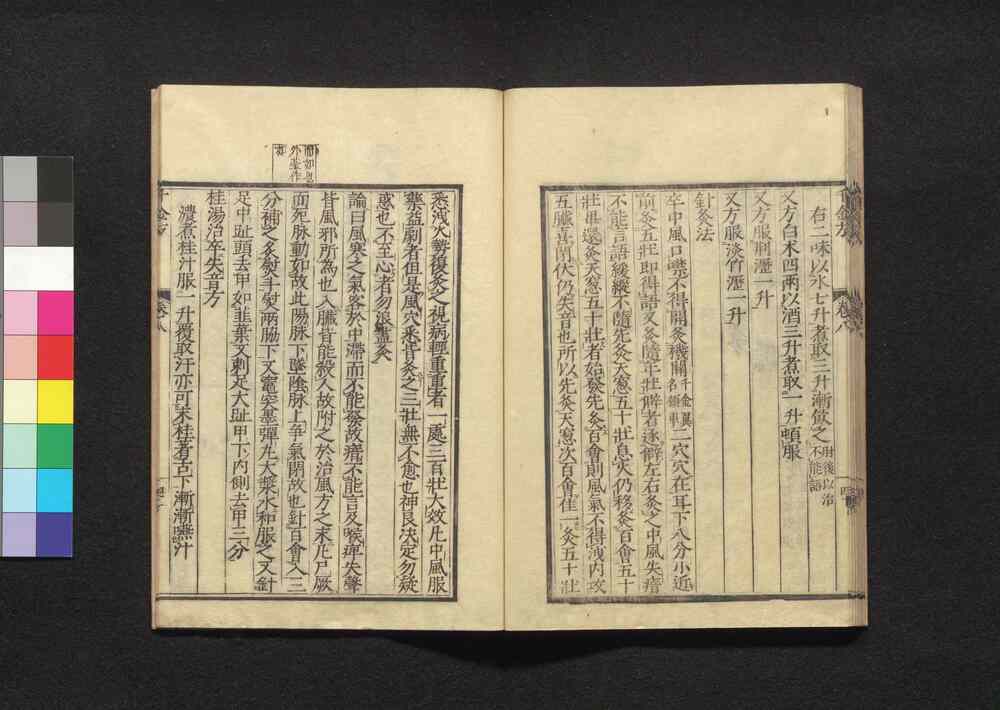 右二味以水七升煮取三升漸飲之肘後以治不能語
又方白朮四兩以酒三升煮取一升頓服
又方服荊瀝一升
又方服淡竹瀝一升
針灸法
卒中風口噤不得開灸機關千金翼名頰車二穴穴在耳下八分小近
前灸五壯即得語又灸隨年壯僻者逐僻左右灸之中風失瘖
不能言語緩縱不隨先灸天窻五十壯息火仍移灸百會五十
壯畢還灸天窻五十壯者始發先灸百會則風氣不得洩內攻
五臟喜閉伏仍失音也所以先灸天窻次百會佳一灸五十壯
悉洩火勢復灸之視病輕重重者一處三百壯大效凡中風服
藥益劇者但是風穴悉皆灸之三壯無不愈也神良决定勿疑
惑也不至心者勿浪盡灸
論曰風寒之氣客於中滯而不能發故瘖不能言及喉痺失聲
皆風邪所為也入臟皆能殺人故附之於治風方之末凡尸厥
而死脉動如故此陽脉下墜陰脉上爭氣閉故也針百會入三
分補之灸熨斗熨兩脇下又竈突墨彈丸大漿水和服之又針
足中趾頭去甲如韭葉又刺足大趾甲下內側去甲三分
桂湯治卒失音方
濃煮桂汁服一升覆取汗亦可末桂著舌下漸漸嚥汁
千金方
卷八
卷八
外臺作